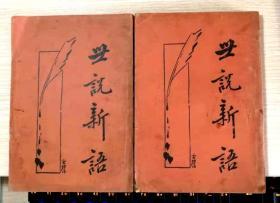 世說新語
世說新語